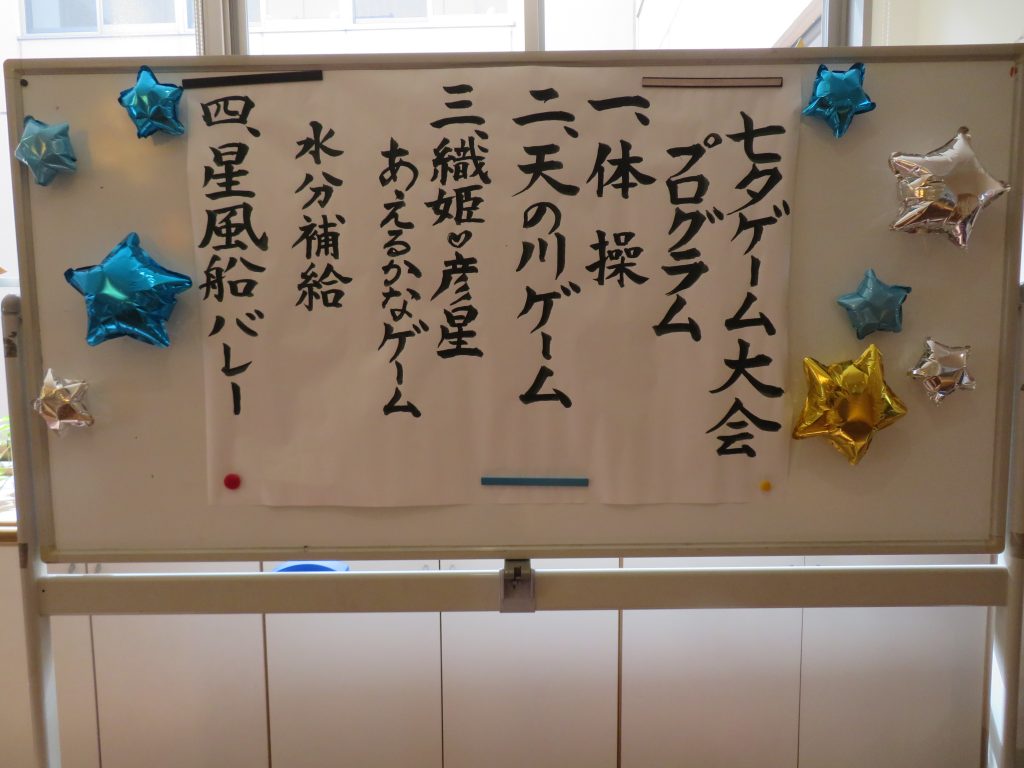 七夕ゲーム大会
プログラム
一、体 操
二、天の川ゲーム
三、織姫♡彦星
あえるかなゲーム
水分補給
四、星風船バレー